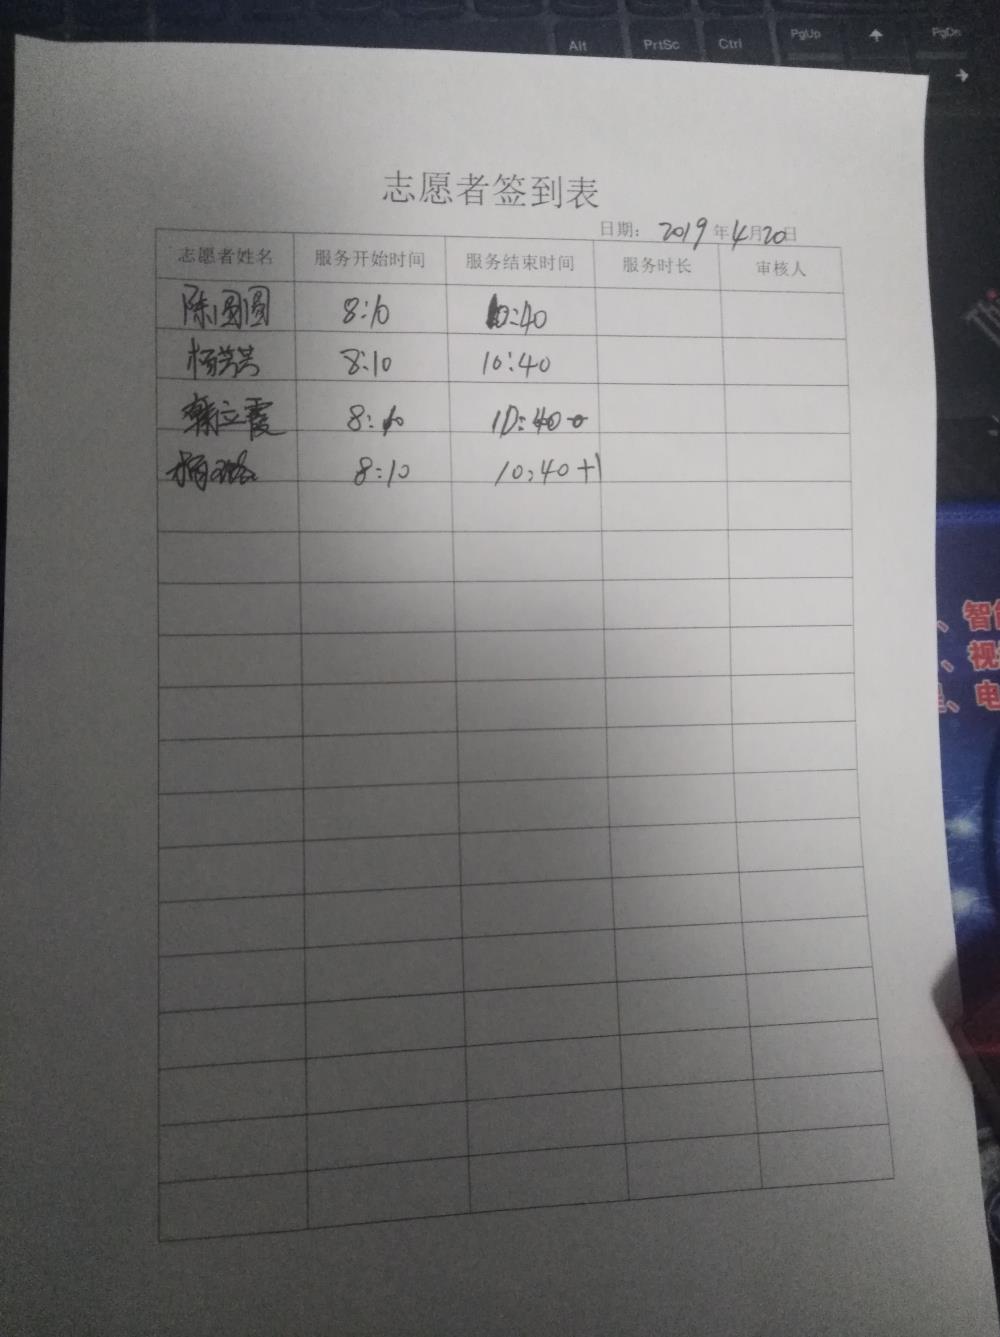 Alt PrtSc Ctrl PgUp PgDn
志愿者签到表
日期: 2019年4月20日
志愿者姓名 服务开始时间 服务结束时间 服务时长 审核人
陈圆圆 8:10 10:40
杨芳芳 8:10 10:40
韩立霞 8:10 10:40
8:10 10:40 +1
、智能
、视
、电